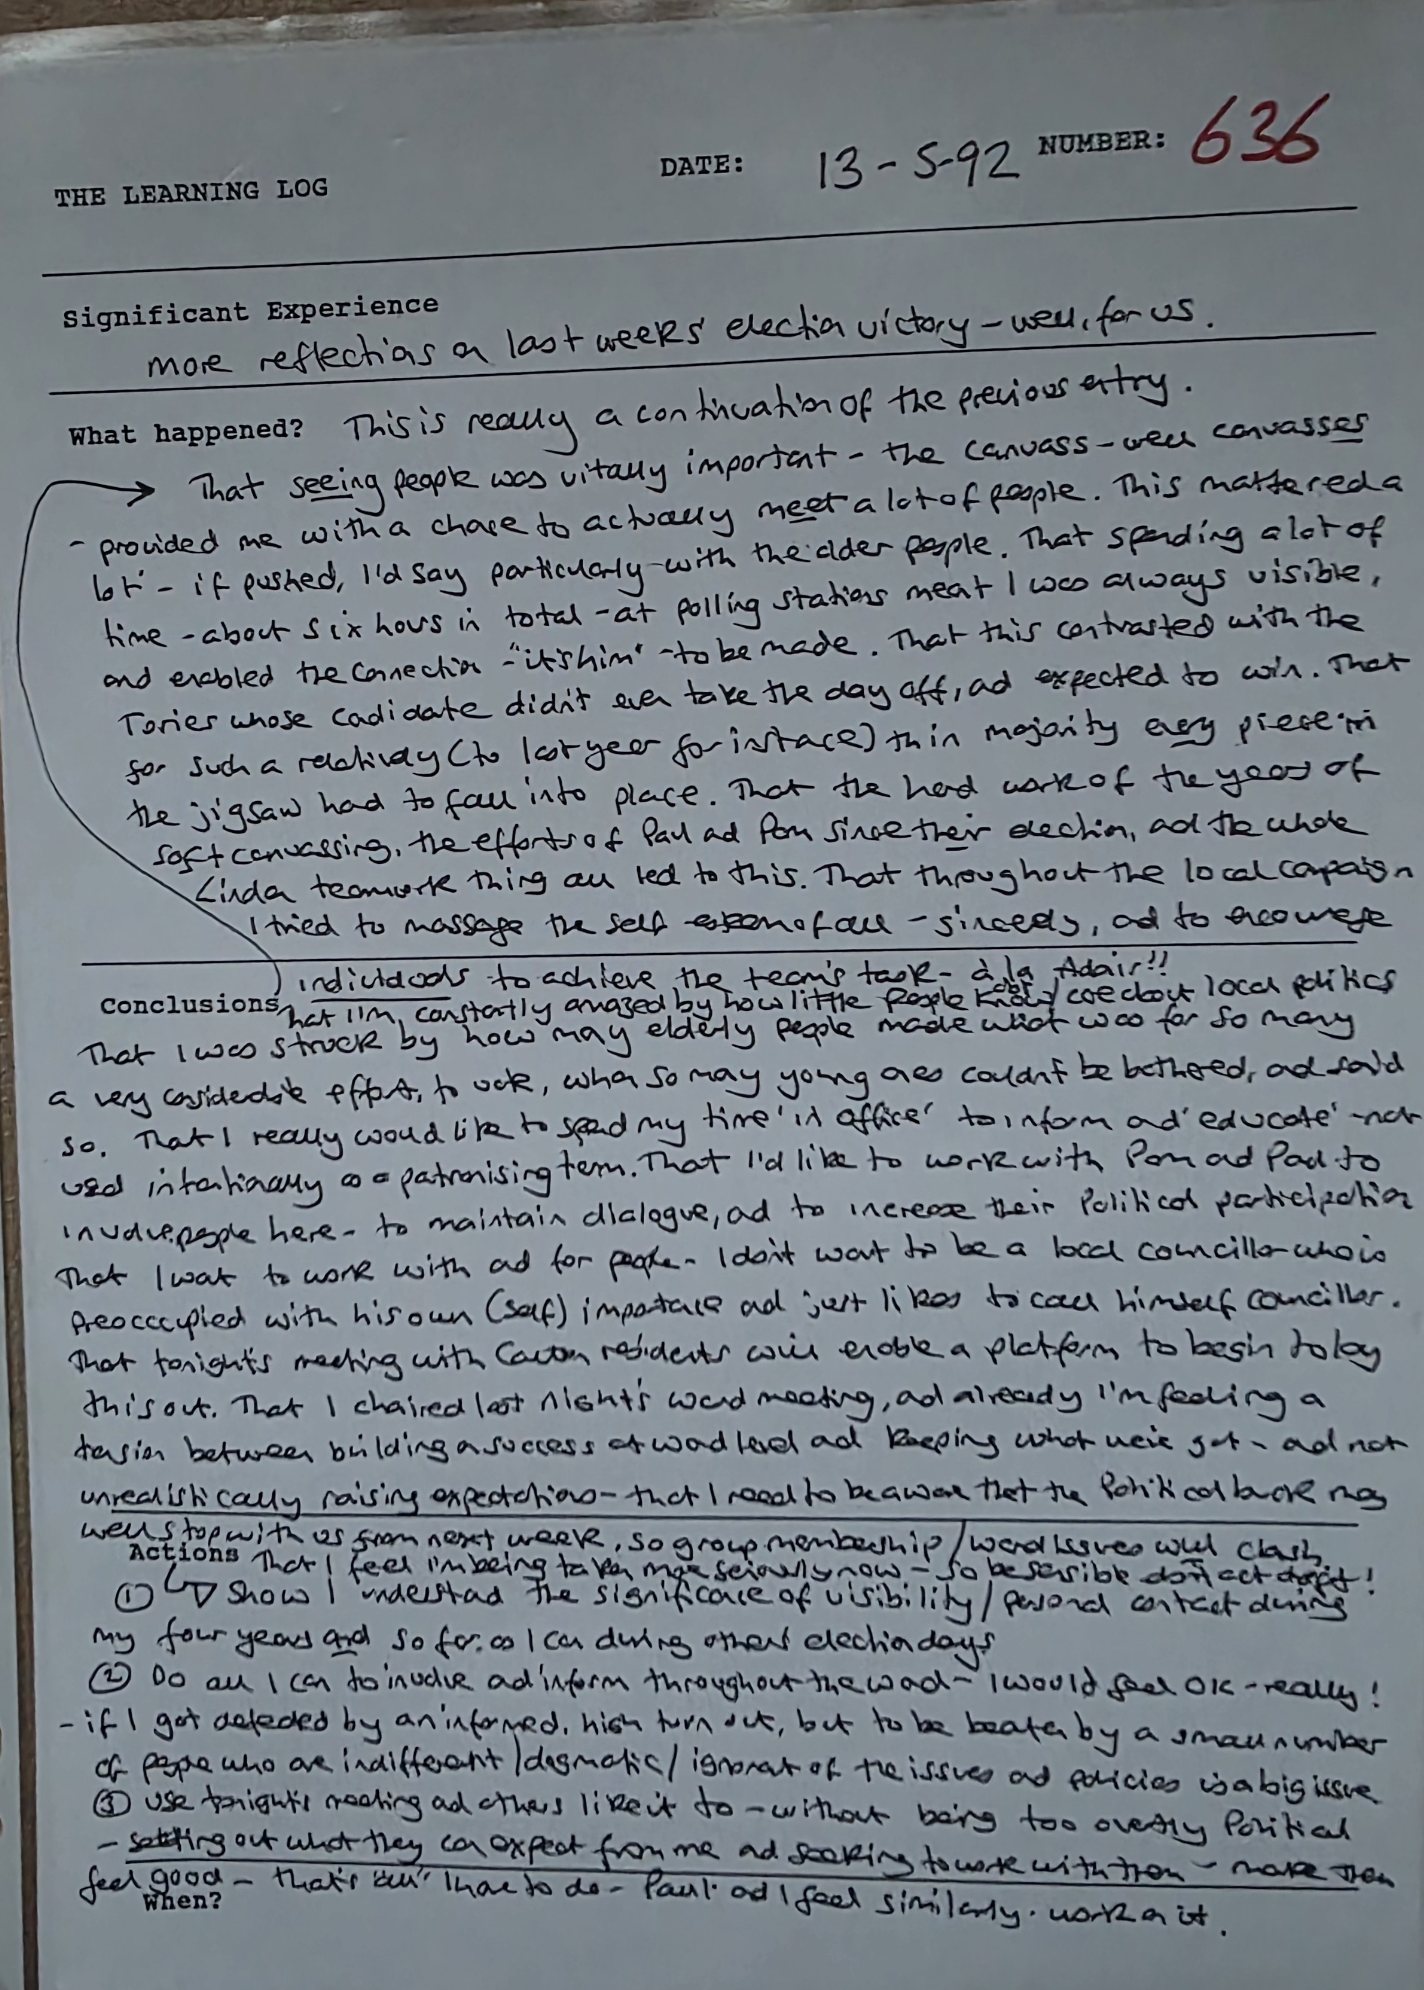 THE LEARNING LOG DATE: 13-5-92 NUMBER: 636
Significant Experience
more reflections on last weeks' election victory - well, for us.
What happened? This is really a continuation of the previous entry.
That seeing people was vitally important - the canvass - well canvasses
- provided me with a chance to actually meet a lot of people. This mattered a
lot - if pushed, I'd say particularly with the older people. That spending a lot of
time - about six hours in total - at polling stations meant I was always visible,
and enabled the connection - "it's him" - to be made. That this contrasted with the
Tories whose candidate didn't even take the day off, and expected to win. That
for such a relatively (to last year for instance) thin majority every piece in
the jigsaw had to fall into place. That the hard work of the years of
soft canvassing, the efforts of Paul and Pam since their election, and the whole
Linda teamwork thing all led to this. That throughout the local campaign
I tried to massage the self esteem of all - sincerely, and to encourage
individuals to achieve the team's task - à la Adair!!
Conclusions That I'm constantly amazed by how little people know/care about local politics
That I was struck by how many elderly people made what was for so many
a very considerable effort, to vote, when so many young ones couldn't be bothered, and said
so. That I really would like to spend my time 'in office' to inform and 'educate' - not
used intentionally as a patronising term. That I'd like to work with Pam and Paul to
involve people here - to maintain dialogue, and to increase their political participation
That I want to work with and for people - I don't want to be a local councillor who is
preoccupied with his own (self) importance and just likes to call himself councillor.
That tonight's meeting with residents will enable a platform to begin to lay
this out. That I chaired last night's ward meeting, and already I'm feeling a
tension between building a success at ward level and keeping what we've got - and not
unrealistically raising expectations - that I need to be aware that the political buck may
well stop with us from next week, so group membership/ward issues will clash.
Actions That I feel I'm being taken more seriously now - so be sensible don't act daft!
① Show I understand the significance of visibility/personal contact during
my four years and so far as I can during others' election days
② Do all I can to involve and inform throughout the ward - I would feel OK - really!
- if I got defeated by an informed, high turn out, but to be beaten by a small number
of people who are indifferent/dogmatic/ignorant of the issues and policies is a big issue
③ use tonight's meeting and others like it to - without being too overtly Political
- setting out what they can expect from me and seeking to work with them - make them
feel good - that's "all" I have to do - Paul and I feel similarly. work on it.
When?